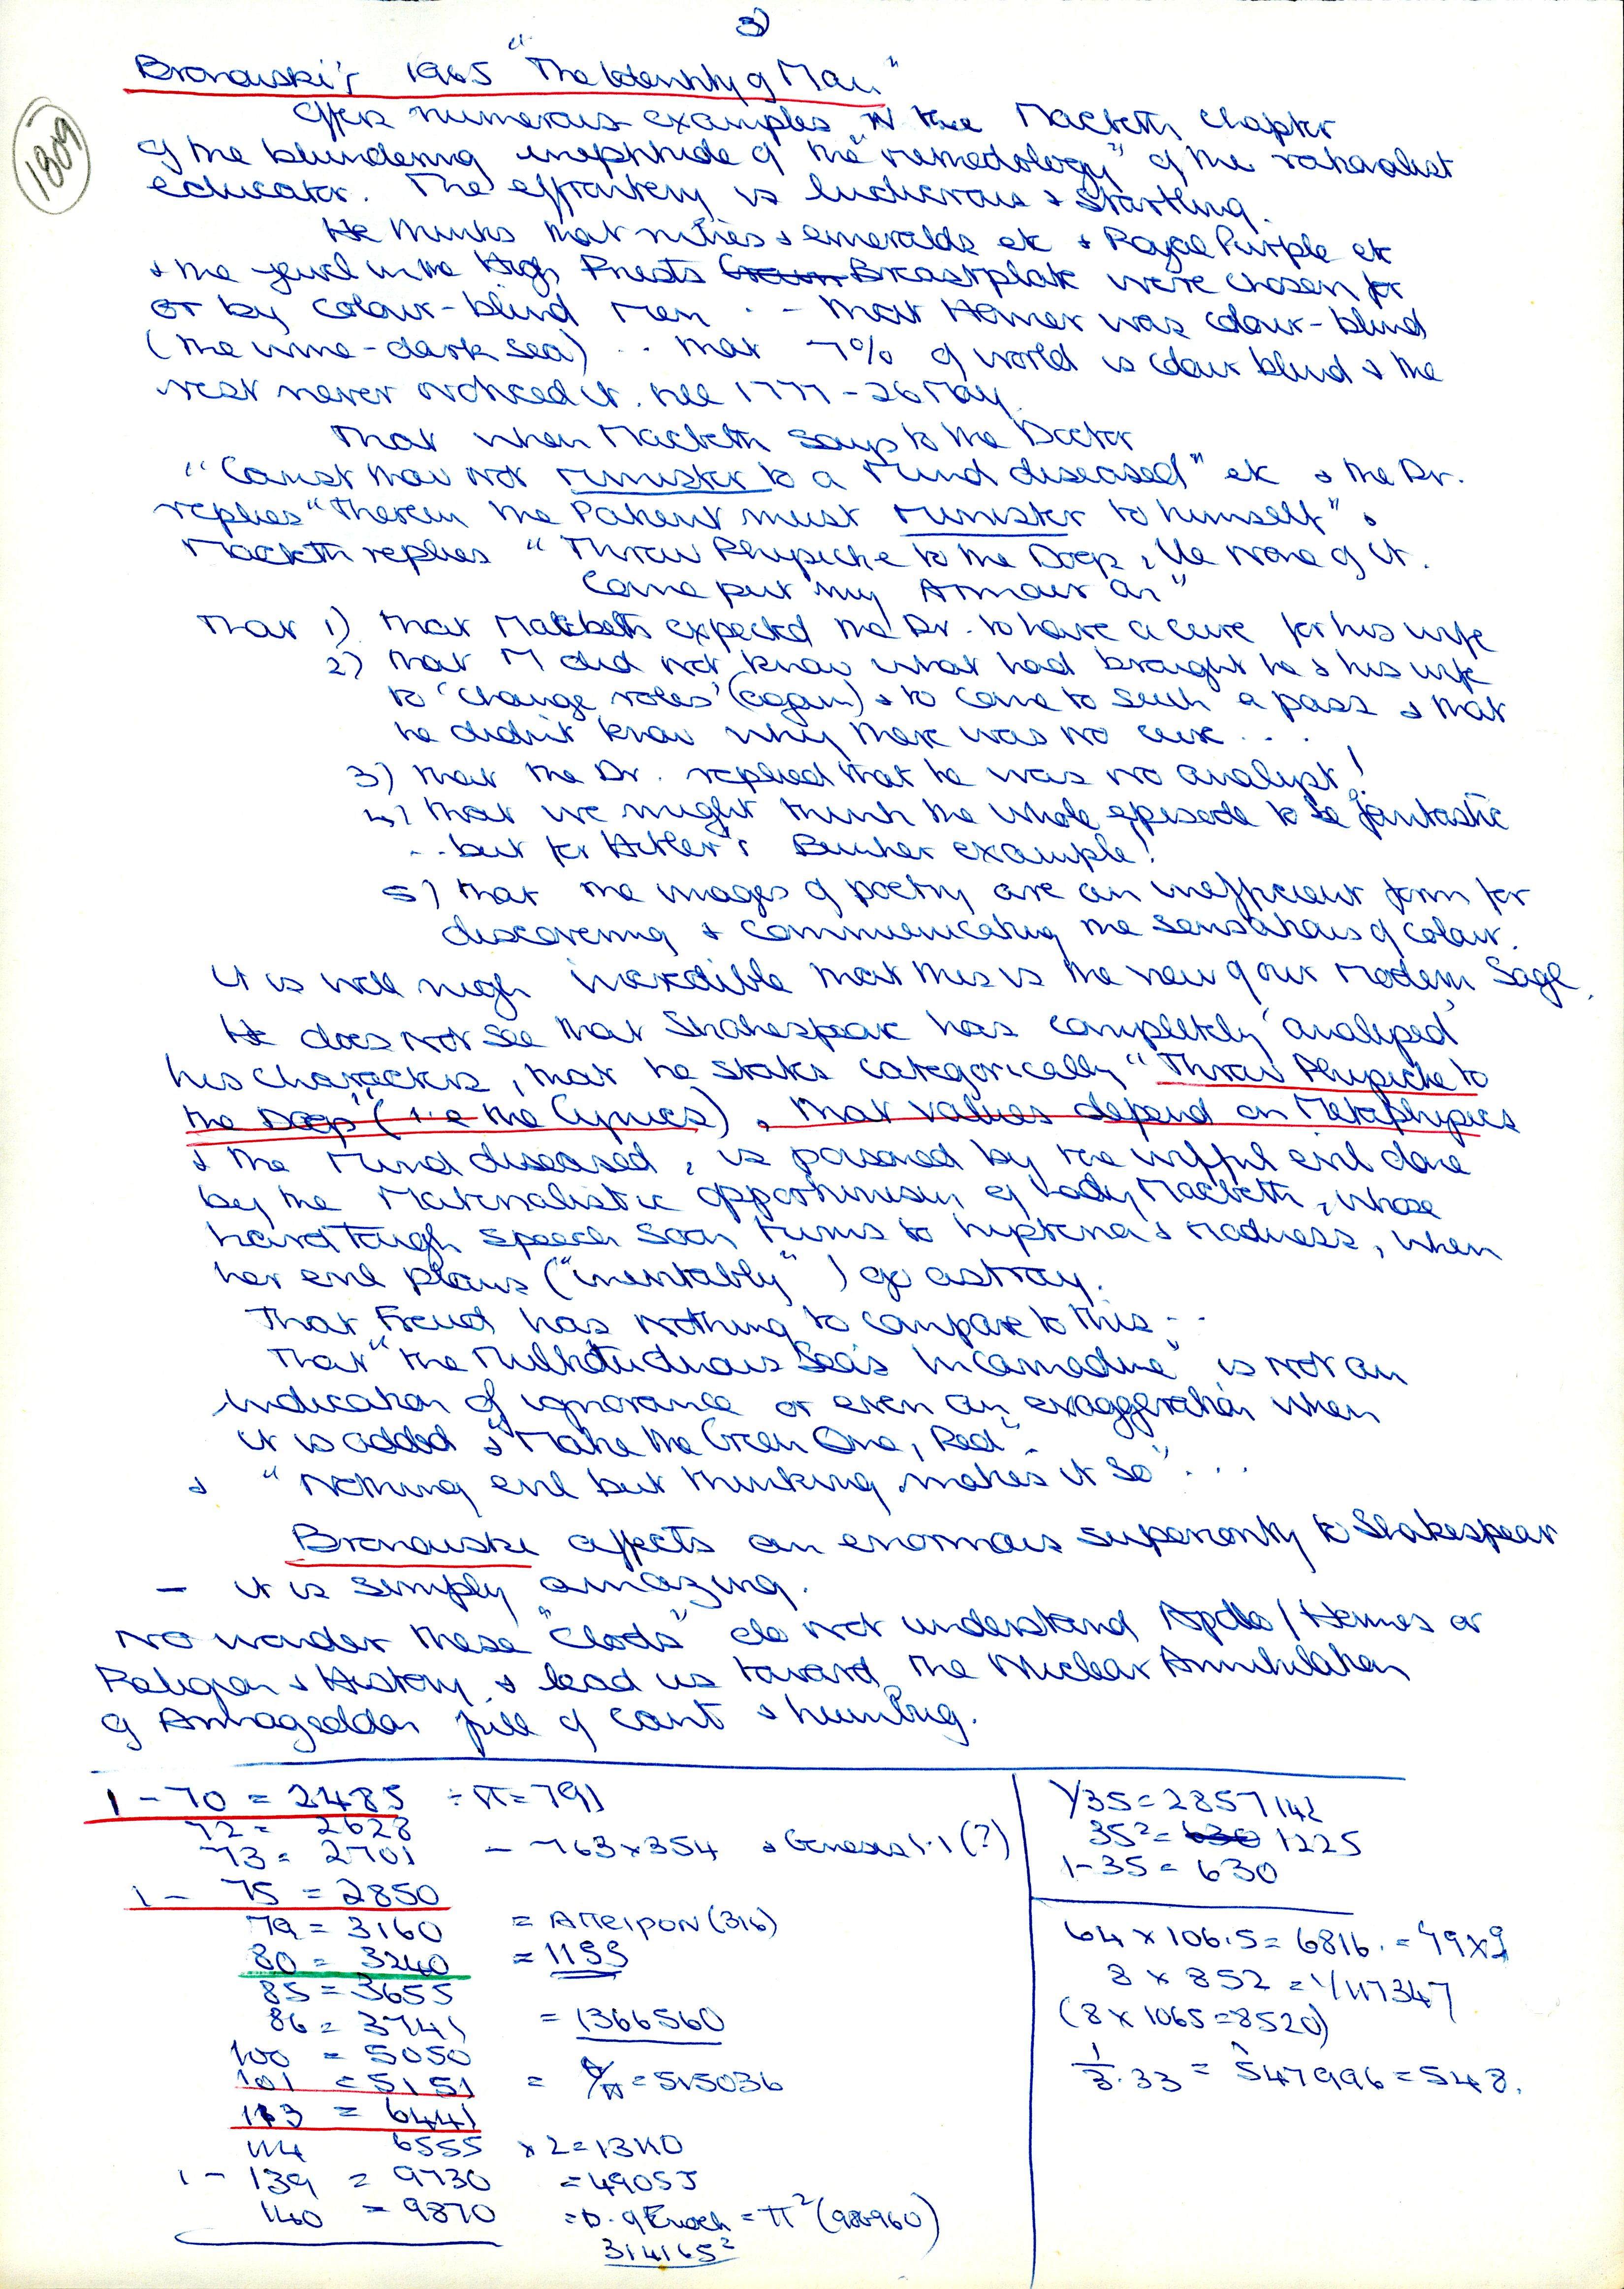 3)
1809
Bronowski's 1965 "The Identity of Man"
Offers numerous examples in the Macbeth chapter
of the blundering ineptitude of the "remedology" of the rationalist
educator. The effrontery is ludicrous & startling.
He thinks that rubies & emeralds etc & Royal Purple etc
& the jewel in the High Priests Breastplate were chosen for
or by colour-blind men .. - that Homer was colour-blind
(the wine-dark sea) .. that 7% of world is colour blind & the
rest never noticed it till 1777 - 26 May.
That when Macbeth says to the Doctor
"Canst thou not minister to a Mind diseased" etc & the Dr.
replies "Therein the Patient must minister to himself" &
Macbeth replies "Throw Physicke to the Dogs, Ile none of it.
Come put my Armour on"
That 1) that Macbeth expected the Dr. to have a cure for his wife
2) that M did not know what had brought he & his wife
to 'change roles' (again) & to come to such a pass & that
he didn't know why there was no cure ...
3) that the Dr. replied that he was no analyst!
4) that we might think the whole episode to be fantastic
.. but for Hitler's Bunker example!
5) that the images of poetry are an inefficient form for
discovering & communicating the sensations of colour.
It is well nigh incredible that this is the view of our modern Sage.
He does not see that Shakespeare has completely 'analysed'
his characters, that he states categorically "Throw Physicke to
the Dogs" (i.e the Cynics), that values depend on Metaphysics
& the Mind diseased, is poisoned by the wilful evil done
by the Materialistic opportunism of Lady Macbeth, whose
hard tough speech soon turns to hysteria & madness, when
her evil plans ("inevitably") go astray.
That Freud has nothing to compare to this ..
That "the Multitudinous Seas Incarnadine" is not an
indication of ignorance or even an exaggeration when
it is added & "Make the Green One, Red".
& "Nothing evil but thinking makes it so" ...
Bronowski affects an enormous superiority to Shakespear
- it is simply amazing.
No wonder these "Clods" do not understand Apollo/Hermes or
Religion & History & lead us toward the Nuclear Annihilation
of Armageddon full of cant & humbug.
1 - 70 = 2485 ÷ π = 791
72 = 2628
73 = 2701 - 763 x 354 & Genesis 1.1 (?)
1 - 75 = 2850
79 = 3160 = Απειρον (316)
80 = 3240 = 1155
85 = 3655
86 = 3741 = 1366560
100 = 5050
101 = 5151 = /π = 515036
113 = 6441
114 6555 x 2 = 13110
1 - 139 = 9730 = 49055
140 = 9870 = D. of Enoch = π² (986960)
314165²
1/35 = 2857142
35² = 630 1225
1 - 35 = 630
64 x 106.5 = 6816. = 79 x 9
8 x 852 = 1/117347
(8 x 1065 = 8520)
1/3.33 = 547996 = 548.